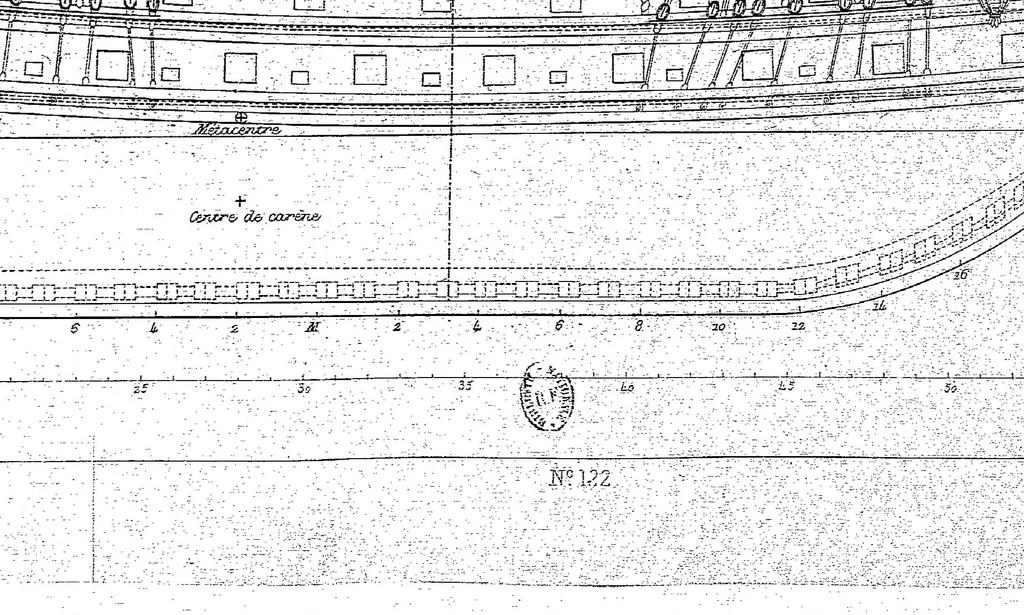 Métacentre
Centre de carène
6 4 2 M 2 4 6 8 10 12 14 16
25 30 35 40 45 50
Nº 122